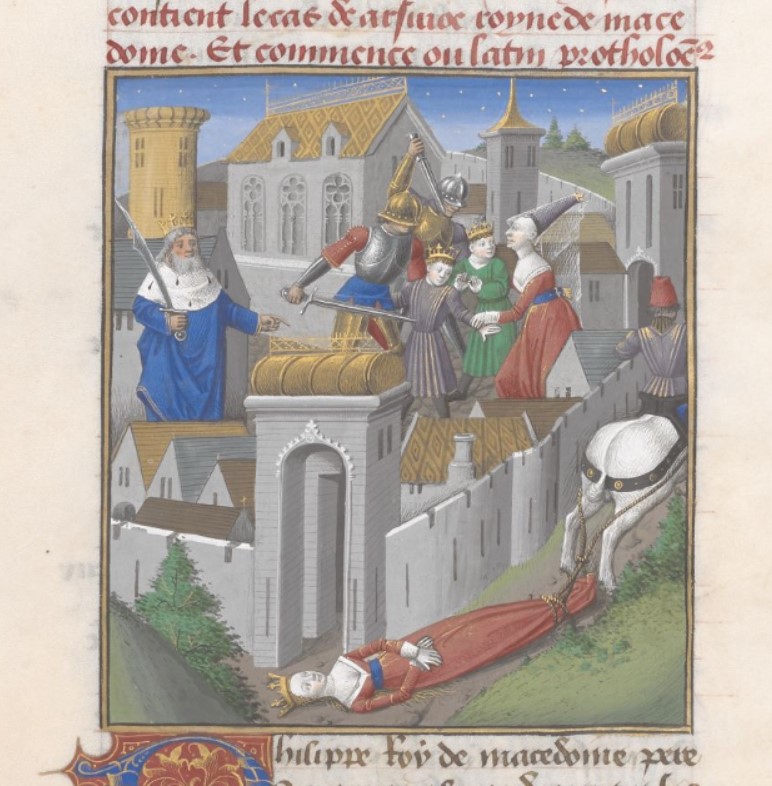 contient le cas de arsinoe royne de mace
dome. Et commence ou latin ptholoē
Philippe Roy de macedoine pere